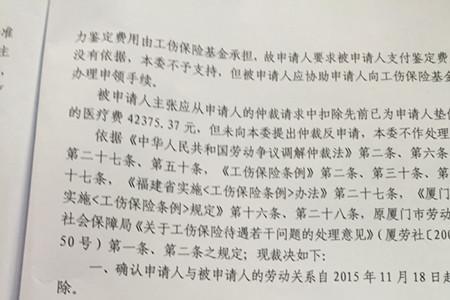 准
主
力鉴定费用由工伤保险基金承担，故申请人要求被申请人支付鉴定费
没有依据，本委不予支持，但被申请人应协助申请人向工伤保险基金
办理申领手续。
被申请人主张应从申请人的仲裁请求中扣除先前已为申请人垫
的医疗费 42375.37 元，但未向本委提出仲裁反申请，本委不作处理
依据《中华人民共和国劳动争议调解仲裁法》第二条、第六条
第二十七条、第五十条，《工伤保险条例》第二条、第三十条、第
十七条，《福建省实施<工伤保险条例>办法》第二十七条，《厦门
实施<工伤保险条例>规定》第十六条、第二十八条，原厦门市劳动
社会保障局《关于工伤保险待遇若干问题的处理意见》(厦劳社〔200
50 号）第一条、第二条之规定；现裁决如下：
一、确认申请人与被申请人的劳动关系自 2015 年 11 月 18 日起
除。